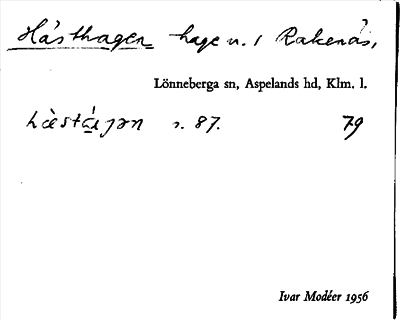 Hästhagen hage u. / Rakenäs,
Lönneberga sn, Aspelands hd, Klm. l.
s. 87. 79
Ivar Modéer 1956